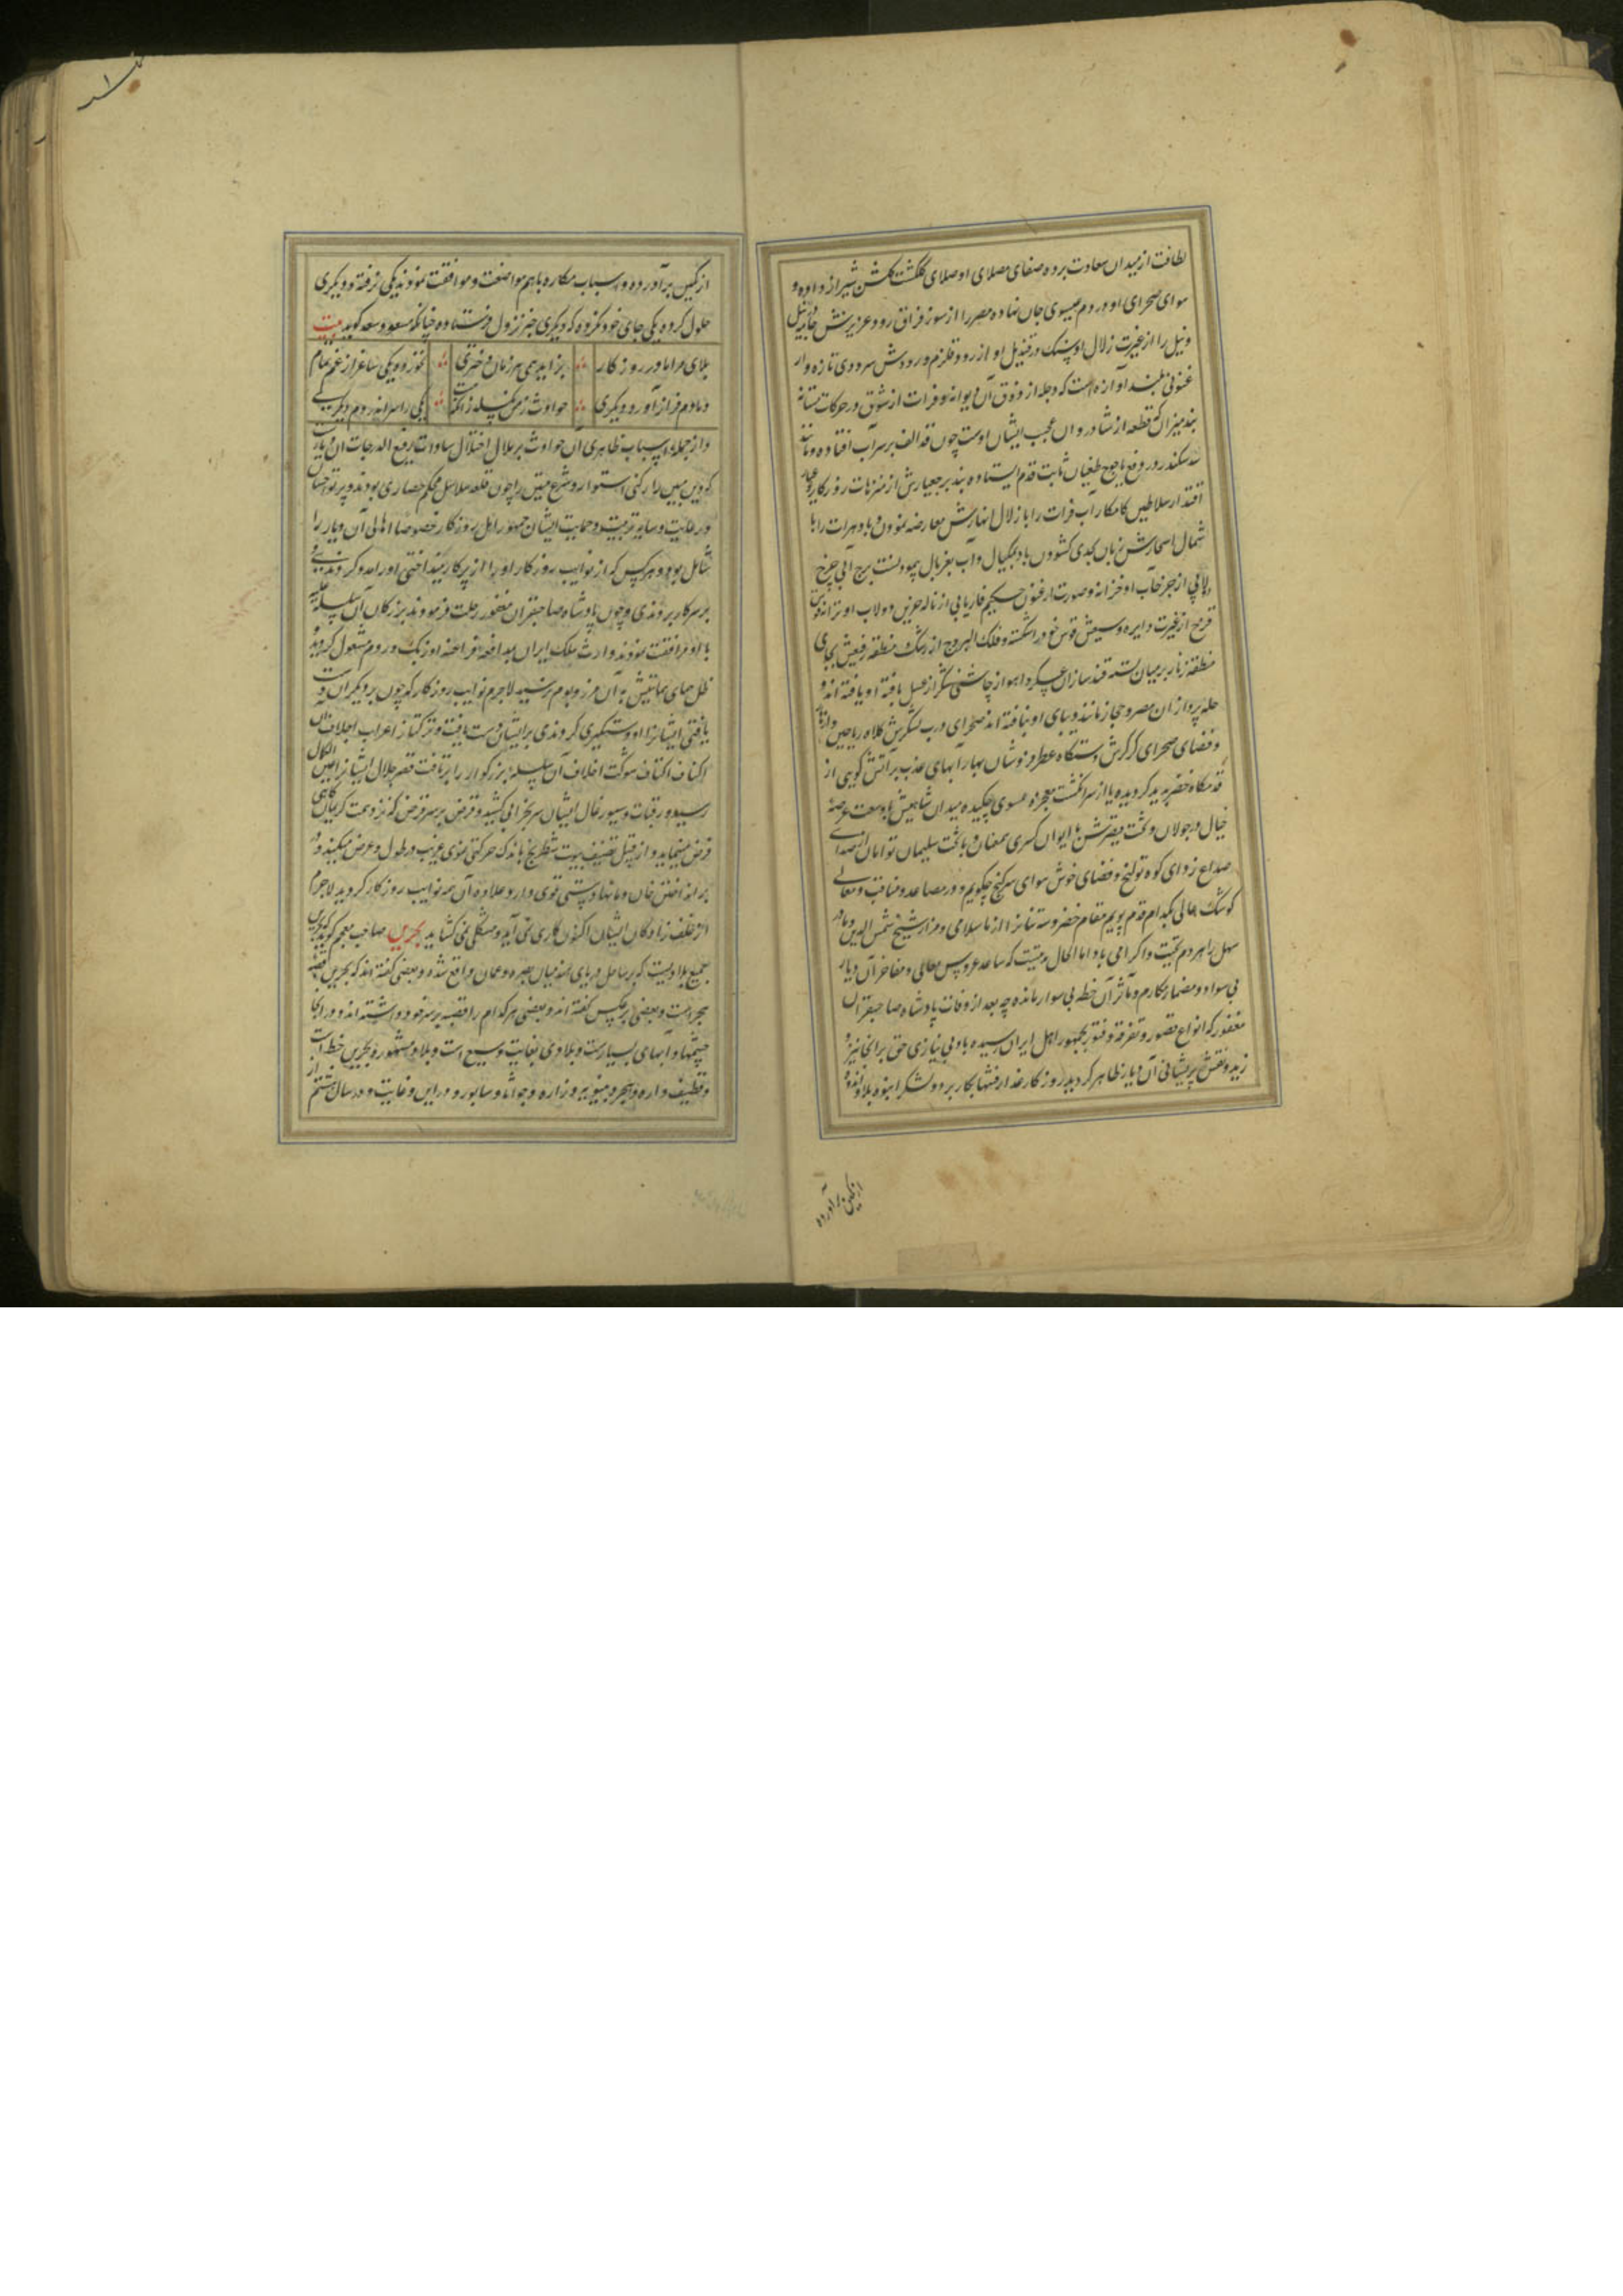 لطافت از میدان سعادت برده صفای مصلای او صلای گلگشت گلشن شیراز داده و
هوای صحرای او دردم عیسوی جان نهاده مصر را از سوز فراق رود عزیزش جامه در نیل
و نیل را از غیرت زلال او سنگ در قندیل او از رود قلزم در رودش سرودی تازه وار
بلند آوازه است که دجله از ذوق آن دیوانه و فرات از شوق در حرکات مستانه
بند میزان که قطعه از شادروان عجب ایشان اوست چون قد الف بر سر آب افتاده و مانند
سد سکندر در دفع یاجوج طغیان ثابت قدم ایستاده بند پر عیارش از متنزهات روزگار
اقتدار سلاطین کامکار آب فرات را با زلال انهارش معارضه نمودن و باد هرات را با
شمال اسحارش زبان بدی گشودن باد بکیال و آب بغربال پیمودنست برج آبی چرخ
دلابی از جز خآب او خزانه و صورت ارغنون حکیم فاریابی از ناله حزین دولاب او ترانه قوس
قزح از غیرت دایره وسیعش قوس خود را شکسته و فلک البروج از رشک منطقه رفیعش بجای
منطقه زنار بر میان بسته قند سازان عسکر و اهواز چاشنی شکر از عسل یافته او یافته اند و
حله پردازان مصر و حجاز مانند دیبای او نبافته اند صحرای درب لشکرش کلاه ریاحین
و فضای صحرای کرکرش دستگاه عطر فروشان بهار آبهای عذب بر آتش گویی از
قدمگاه خضر پدید گردیده یا از سر انگشت معجزه عیسوی چکیده میدان شاهیش با وسعت عرصه
خیال در جولان و تخت قیصرش با ایوان کسری همعنان و با تخت سلیمان توامان از صدای
صداع زدای کوه تولنج و فضای خوش هوای سرگنج چگویم و در مصاعد و مناقب و معالی
کوشک عالی بکدام قدم پویم مقام خضر و سه تنانرا از ما سلامی و مزار شیخ شمس الدین و مادر
سهل را هر دم تحیت و اکرامی باد اما الحال مدتیست که ساعد عروس معالی و مفاخر آن دیار
بی سوار و مضمار مکارم و مآثر آن خطه بی سوار مانده چه بعد از وفات پادشاه صاحبقران
مغفور که انواع قصور و تفرقه و فتور بجمهور اهل ایران رسیده باد بی نیازی حق بر انجا نیز
زید و نقش پریشانی آن دیار ظاهر گردید روزگار غدار فتنها بکار برد و لشکر انبوه بلا و اندوه
از کمین برآورده
از کمین برآورده و اسباب مکاره باهم مواضعت و موافقت نمودند یکی نرفته و دیگری
حلول کرده یکی جای خود نکرده که دیگری خبر نزول فرستاده چنانکه مسعود سعد گوید بیت
بلای مرا مادر روزگار بزاید همی هر زمان دختری نخوردم یکی ساغر از غم تمام
دمادم فراز آورد دیگری حوادث ز من نگسلد زانکه هست یکی را سر اندر دم دیگری
و از جمله اسباب ظاهری آن حوادث پر ملال اختلال سادات رفیع الدرجات آن دیارست
که دین مبین را رکنی استوار و شرع متین را چون قلعه سلاسل محکم حصاری بودند و پرتو احسان
و رعایت و سایه تربیت و حمایت ایشان جمهور اهل روزگار خصوصا اهالی آن دیار را
شامل بود و هر کس که از نوایب روزگار او را از پر کار بینداختی او را مدد کردندی و
بر سر کار بردندی و چون پادشاه صاحبقران مغفور رحلت فرمودند بزرگان آن سلسله علیه
با او مرافقت نمودند وارث ملک ایران بمدافعه فراعنه اوزبک و روم مشغول گردید
ظل همای حمایتش به آن مرز و بوم نرسید لاجرم نوایب روزگار که چون بر دیگران دست
یافتی ایشانرا او دستگیری کردندی بر ایشان دست یافت و ترکتاز اعراب اجلاف آن
اکناف اکتاف شوکت اخلاف آن سلسله بزرگوار را برتافت قصر جلال ایشانرا عین الکمال
رسید و رقبات و سیورغال ایشان سر بخرابی کشید و قرض بر سر قرض
قرض مینماید و از قبیل تضعیف بیوت شطرنج باندک حرکتی نموی غریب در طول و عرض میکند و در
بر انداختن خان و مانها دستی قوی دارد علاوه آن همه نوایب روزگار گردید لاجرم
از خلف زادگان ایشان اکنون کاری نمی آید و مشکلی نمی گشاید بحرین صاحب معجم گوید که بحرین
جمیع بلادیست که بر ساحل دریای هند میان بصره و عمان واقع شده و بعضی گفته اند که بحرین قصبه
هجر است و بعضی بر عکس گفته اند و بعضی هر کدام را قصبه بر سر خود داشته اند و در انجا
چشمها و آبهای بسیارست و بلادی بغایت وسیع است و بلاد مشهوره بحرین خط است
و قطیف و اره و هجر و بینونه و زاره و جواثا و سابور و دارین و غابه و در سال هشتم از